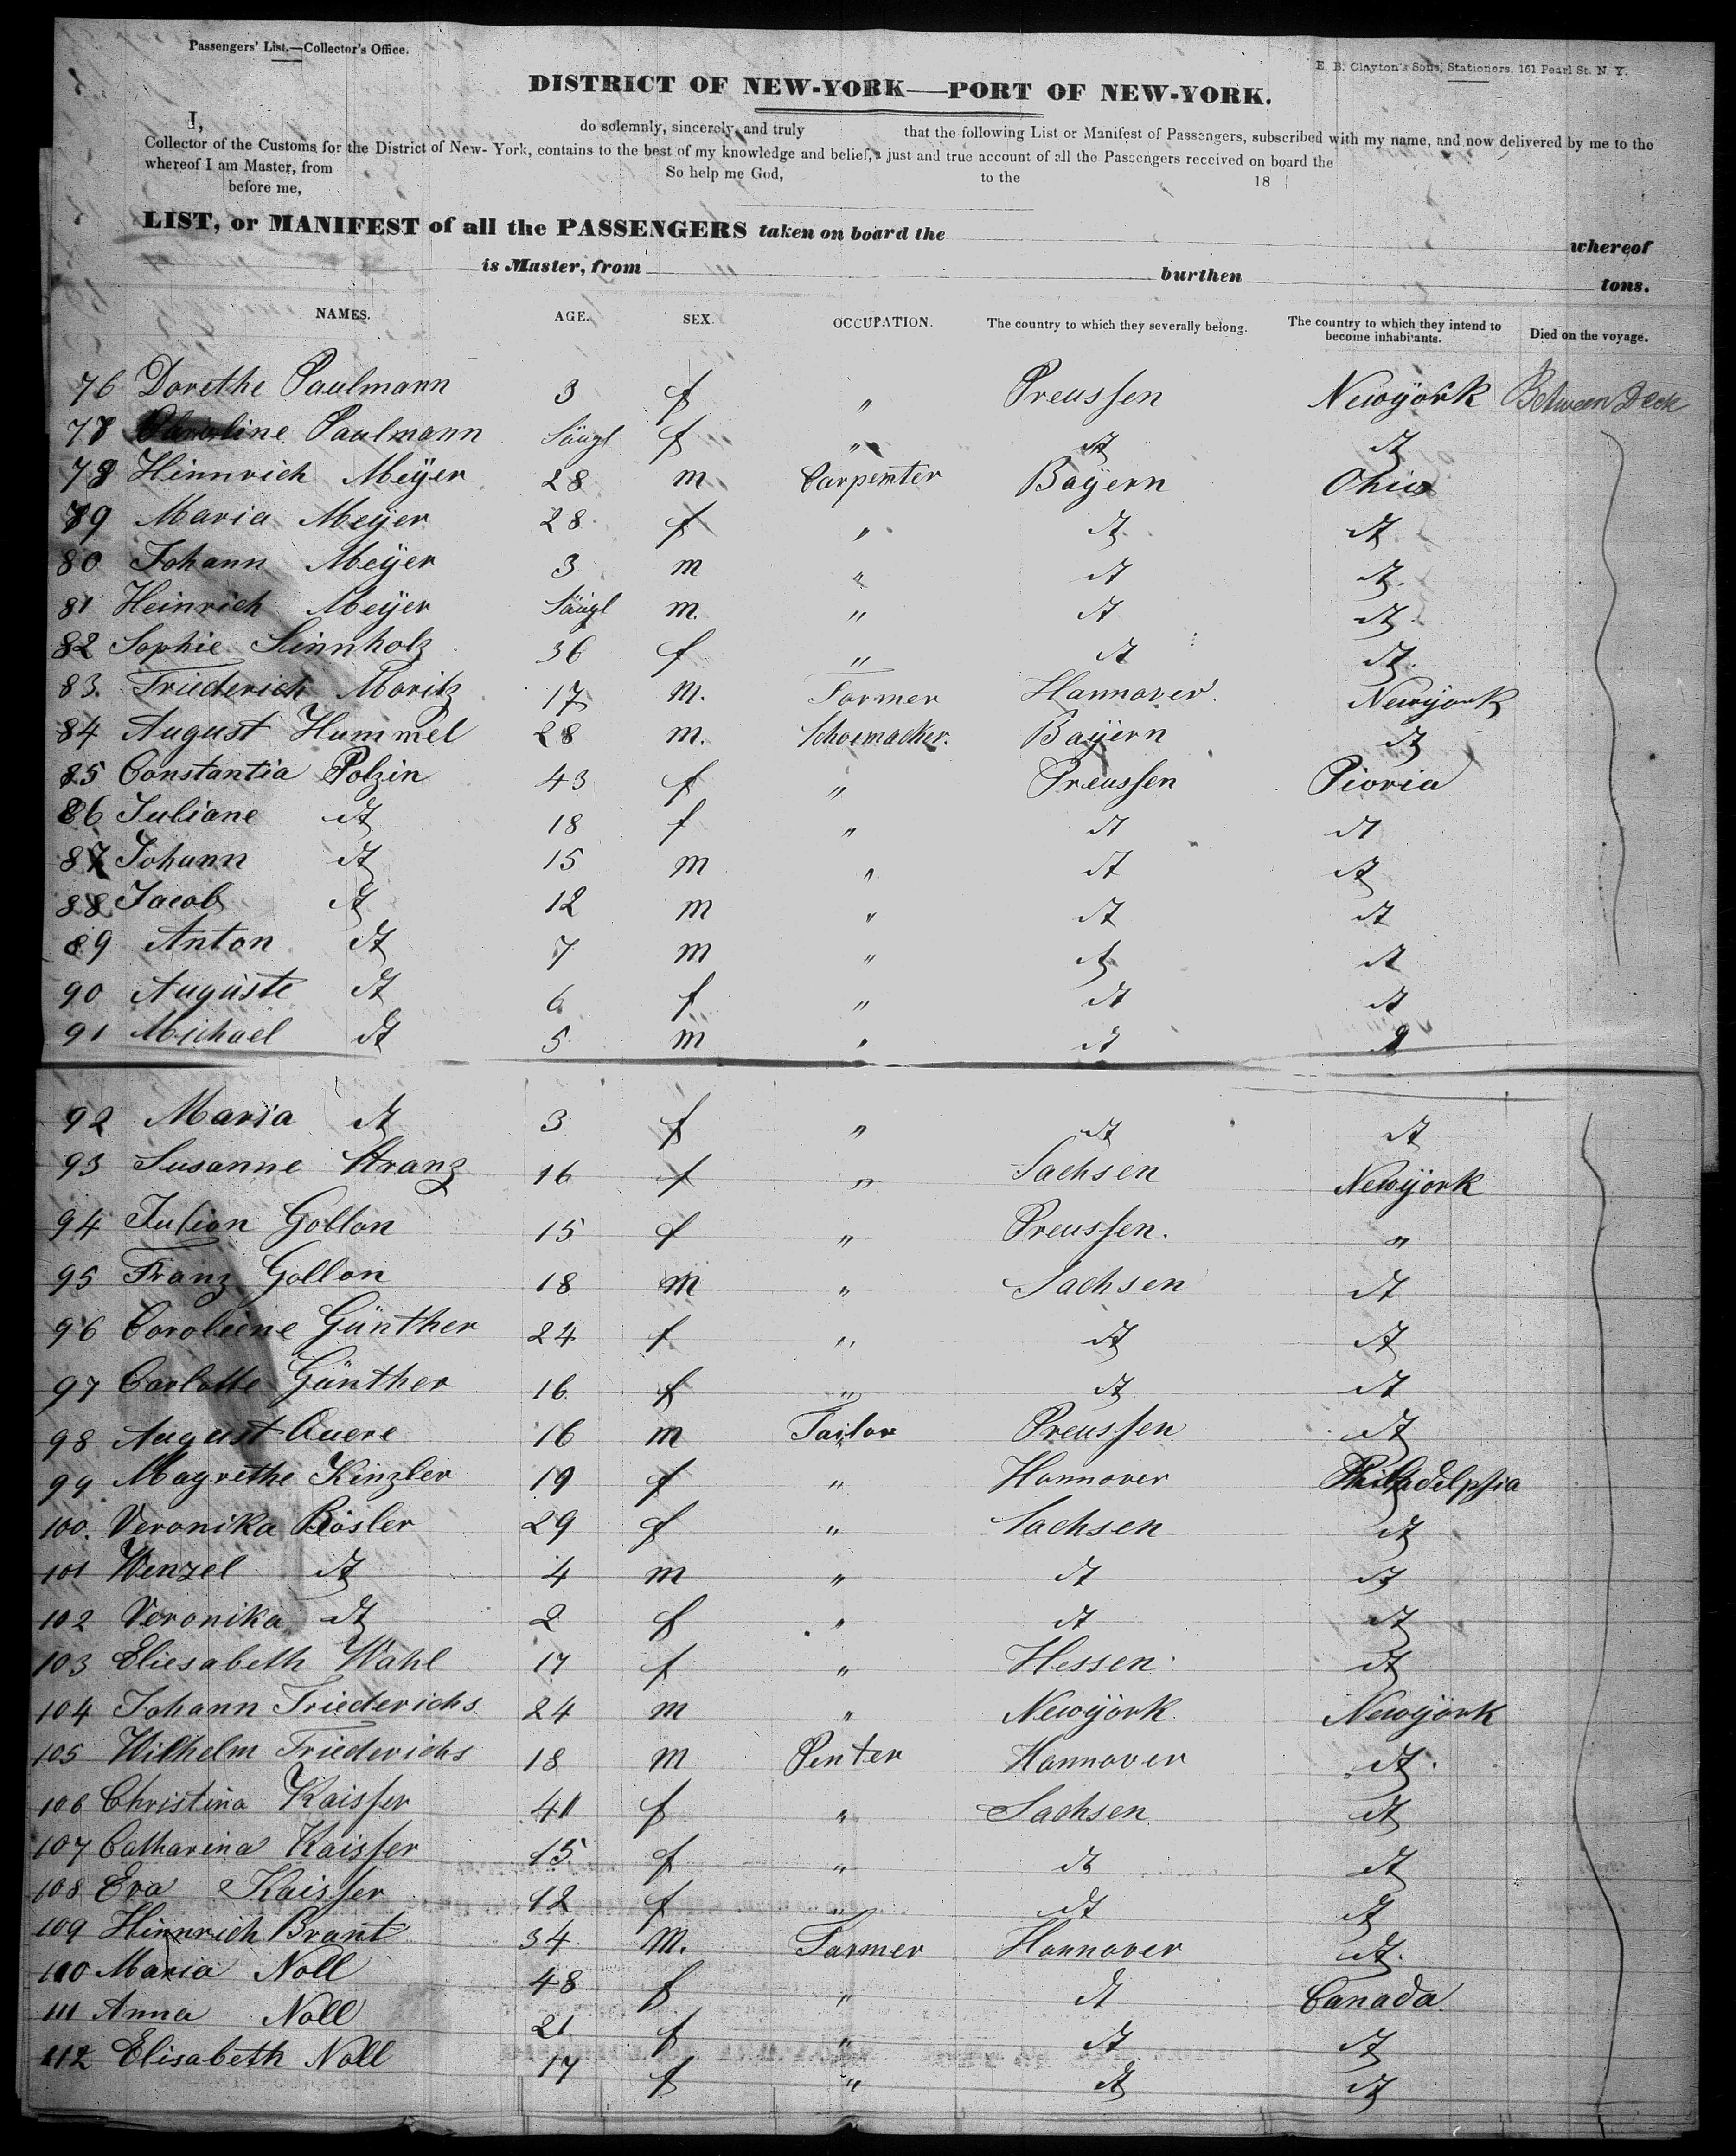 Passengers' List.—Collector's Office.
E. B. Clayton's Sons, Stationers, 161 Pearl St. N. Y.
DISTRICT OF NEW-YORK—PORT OF NEW-YORK.
I, do solemnly, sincerely, and truly that the following List or Manifest of Passengers, subscribed with my name, and now delivered by me to the
Collector of the Customs for the District of New-York, contains to the best of my knowledge and belief, a just and true account of all the Passengers received on board the
whereof I am Master, from So help me God, to the 18
before me,
LIST, or MANIFEST of all the PASSENGERS taken on board the whereof
is Master, from burthen tons.
NAMES. AGE. SEX. OCCUPATION. The country to which they severally belong. The country to which they intend to become inhabitants. Died on the voyage.
76 Dorethe Paulmann 3 f " Preussen Newyork Between Deck
77 Paulmann Säugl f " dt dt
78 Hinnrich Meyer 28 m Carpenter Bayern Ohio
79 Maria Meyer 28 f " dt dt
80 Johann Meyer 3 m " dt dt
81 Heinrich Meyer Säugl m. " dt dt
82 Sophie Sinnholz 36 f " dt dt
83. Friederich Moritz 17 m. Farmer Hannover. Newyork
84 August Hummel 28 m. Schoemacker. Bayern dt
85 Constantia Polzin 43 f " Preussen Pioria
86 Juliane dt 18 f " dt dt
87 Johann dt 15 m " dt dt
88 Jacob dt 12 m " dt dt
89 Anton dt 7 m " dt dt
90 Auguste dt 6 f " dt dt
91 Michael dt 5 m " dt
92 Maria dt 3 f " dt dt
93 Susanne Kranz 16 f " Sachsen Newyork
94 Julian Gollon 15 f " Preussen. "
95 Franz Gollon 18 m " Sachsen dt
96 Caroliene Günther 24 f " dt dt
97 Carlotte Günther 16 f " dt dt
98 August Quere 16 m Tailor Preussen dt
99 Magrethe Kinzler 19 f " Hannover Philadelphia
100. Veronika Rösler 29 f " Sachsen dt
101 Wenzel dt 4 m " dt dt
102 Veronika dt 2 f " dt dt
103 Eliesabeth Wahl 17 f " Hessen dt
104 Johann Friederichs 24 m " Newyork Newyork
105 Wilhelm Friederichs 18 m Penter Hannover dt
106 Christina Kaisser 41 f " Sachsen dt
107 Catharina Kaisser 15 f " dt dt
108 Eva Kaisser 12 f " dt dt
109 Hinnrich Brant 34 m. Farmer Hannover dt.
110 Maria Noll 48 f " dt Canada
111 Anna Noll 21 f " dt dt
112 Elisabeth Noll 17 f " dt dt